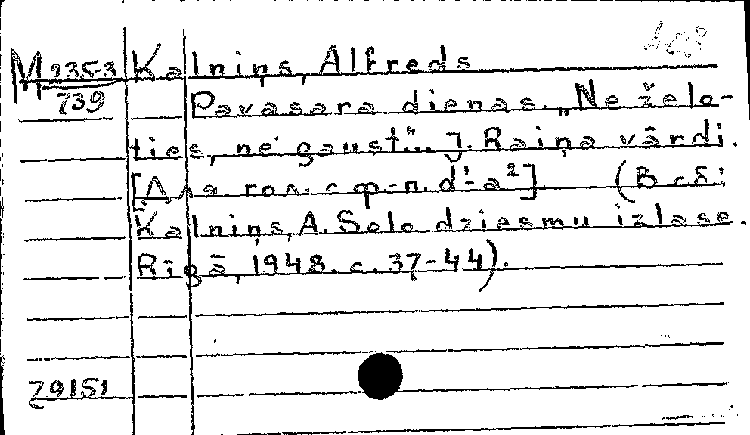 M 2353 Kalniņš, Alfreds
739 Pavasara dienas. „Ne želo-
ties, ne gaust“... J. Raiņa vārdi.
[Для гол. с ф-п. d¹-a²] (В сб:
Kalniņš, A. Solo dziesmu izlase.
Rīgā, 1948. с. 37-44).
79151